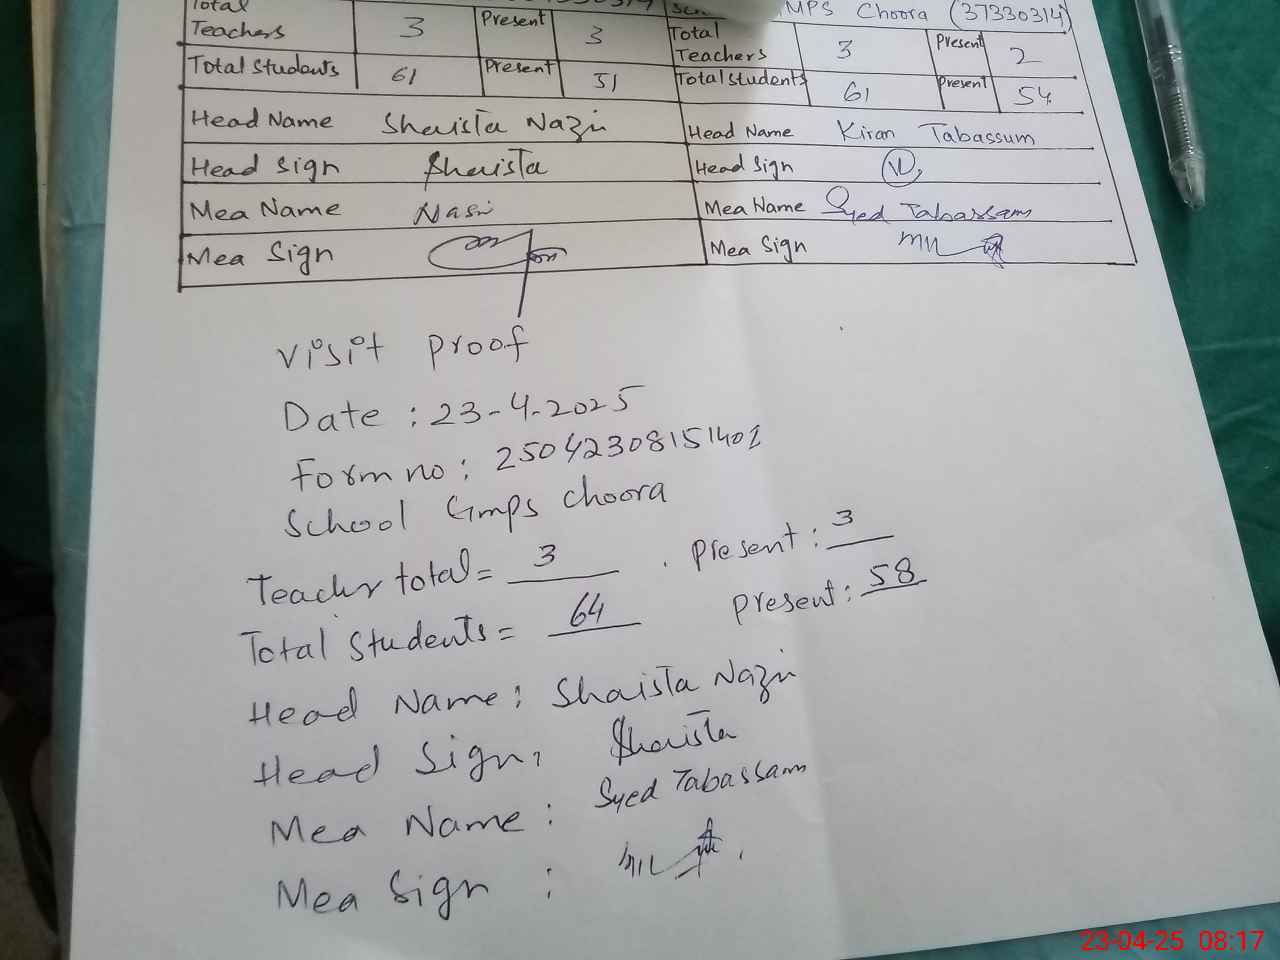 Total Teachers 3 Present 3
Total students 61 Present 51
Head Name Shaista Nazir
Head Sign Shaista
Mea Name Nasir
Mea Sign
GMPS Choora (37330314)
Total Teachers 3 Present 2
Total students 61 Present 54
Head Name Kiran Tabassum
Head Sign
Mea Name Syed Tabassam
Mea Sign
Visit proof
Date : 23-4-2025
Form no : 25042308151401
School Gmps Choora
Teachr total = 3 . Present : 3
Total Students = 64 Present : 58
Head Name : Shaista Nazir
Head Sign : Shaista
Mea Name : Syed Tabassam
Mea Sign :
23-04-25 08:17